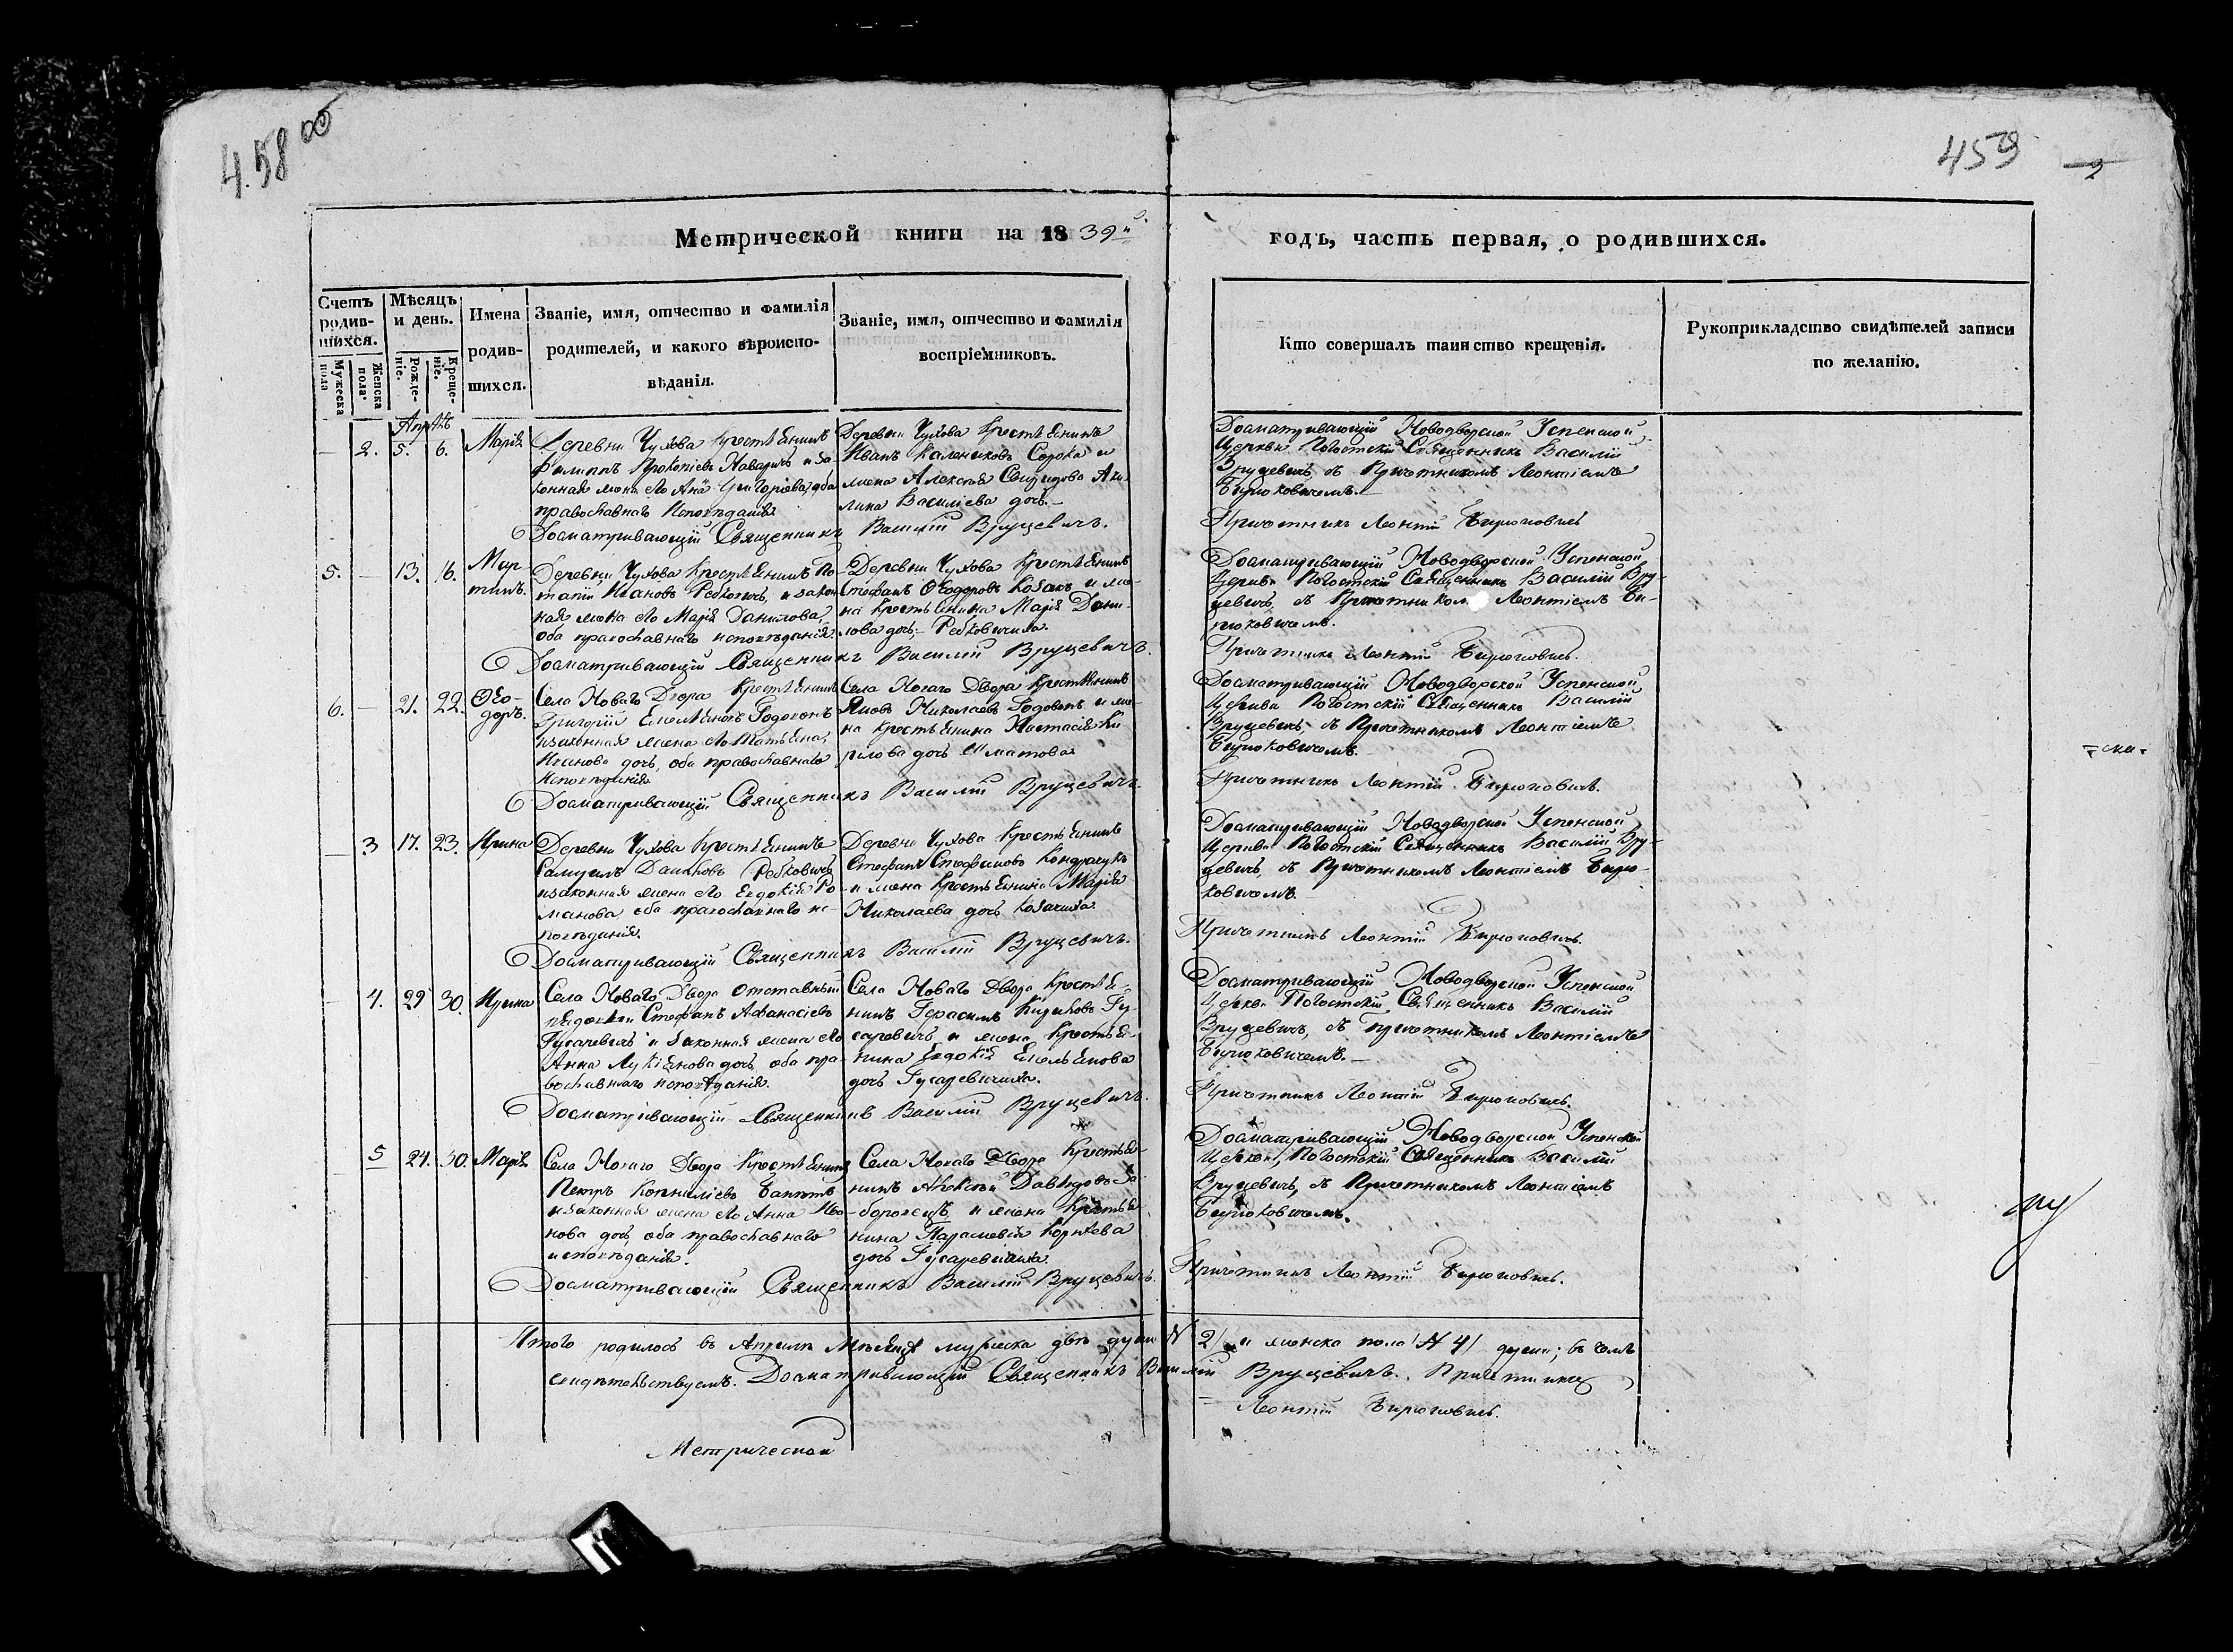 458 об
459
Метрической книги на 1839й
годъ, часть первая, о родившихся.
Счетъ родив-шихся.
Мужеска пола
Женска пола.
Мѣсяцъ и день.
Рожде-ніе.
Креще-ніе.
Имена родив-шихся.
Званіе, имя, отчество и фамилія родителей, и какого вѣроиспо-вѣданія.
Званіе, имя, отчество и фамилія воспріемниковъ.
Кто совершалъ таинство крещенія.
Рукоприкладство свидѣтелей записи по желанію.
Апрѣль
— 2. 5. 6. Марія
Деревни Чухова крестьянинъ
Филиппъ Прокопіевъ и за-
конная жена его Анна Григоріева, оба
православнаго исповѣданія
Деревни Чухова крестьянинъ
Иванъ Калениковъ Сорока и
жена Алексѣя Свиридова Аку-
лина Василіева дочь.—
Досматривающій Священникъ Василій Вруцевичъ.
Досматривающій Новодворской Успенской
Церкви Погостскій Священникъ Василій
Вруцевичъ, съ Причетникомъ Леонтіемъ
Бирюковичемъ.—
Причетникъ Леонтій Бирюковичъ
5. — 13. 16. Мар-
тинъ.
Деревни Чухова крестьянинъ По-
тапій Ивановъ Ребковичъ, и закон
ная жена его Марія Данилова,
оба православнаго исповѣданія
Деревни Чухова крестьянинъ
Стефанъ Ѳеодоровъ Козакъ и же-
на крестьянина Марія Дани-
лова дочь,- Ребковичиха.
Досматривающій Священникъ Василій Вруцевичъ.
Досматривающій Новодворской Успенской
Церкви Погостскій Священникъ Василій Вру-
цевичъ, съ Причетником Леонтіемъ Би-
рюковичемъ.
Причетникъ Леонтій Бирюковичъ.
6. — 21. 22. Ѳео-
доръ.
Села Новаго Двора крестьянинъ
Григорій Емельяновъ
и законная жена его Татьяна
Иванова дочь, оба православнаго
исповѣданія
Села Новаго Двора крестьянинъ
Яковъ Николаевъ и же-
на крестьянина Настасія Ки-
рилова дочь
Досматривающій Священникъ Василій Вруцевичъ.
Досматривающій Новодворской Успенской
Церкви Погостскій Священникъ Василій
Вруцевичъ, съ Причетникомъ Леонтіемъ
Бирюковичемъ.
Причетникъ Леонтій Бирюковичъ.
— 3 17. 23. Ирина
Деревни Чухова крестьянинъ
Самуилъ Ребковичъ
и законная жена его Евдокія Ро-
манова оба православнаго ис-
повѣданія.
Деревни Чухова крестьянинъ
Стефанъ Стефановъ Кондрасукъ
и жена крестьянина Марія
Николаева дочь Козачиха
Досматривающій Священникъ Василій Вруцевичъ.
Досматривающій Новодворской Успенской
Церкви Погостскій Священникъ Василій Вру-
цевичъ, съ Причетникомъ Леонтіемъ Бирю-
ковичемъ.
Причетникъ Леонтій Бирюковичъ.
— 4. 29 30. Ирина
Села Новаго Двора отставный
Стефанъ Афанасіевъ
Гусаревичъ и законная жена его
Анна Лукіянова дочь, оба пра-
вославнаго исповѣданія.
Села Новаго Двора крестья-
нинъ Герасимъ Кириловъ Гу-
саревичъ и жена крестья-
нина Евдокія Емельянова
дочь Гусаревичиха.
Досматривающій Священникъ Василій Вруцевичъ.
Досматривающій Новодворской Успенской
Церкви Погостскій Священникъ Василій
Вруцевичъ, съ причетникомъ Леонтіемъ
Бирюковичемъ.—
Причетникъ Леонтій Бирюковичъ.
— 5 24. 30. Марія
Села Новаго Двора крестьянинъ
Петръ Корниліевъ
и законная жена его Анна Ива-
нова дочь, оба православнаго
исповѣданія.
Села Новаго Двора крестья-
нинъ Алексѣй Давыдовъ За-
борожецъ, и жена крестья-
нина Параскевія Корнѣева
дочь Гусаревичиха.
Досматривающій Священникъ Василій Вруцевичъ.
Досматривающій Новодворской Успенской
Церкви, Погостскій Священникъ Василій
Вруцевичъ, съ Причетникомъ Леонтіемъ
Бирюковичемъ.
Причетникъ Леонтій Бирюковичъ.
Итого родилось въ Апрѣлѣ мѣсяцѣ мужеска двѣ души № 2/ и женска пола /№ 4/ души; въ чемъ
свидѣтельствуемъ. Досматривающій Священникъ Василій Вруцевичъ. Причетникъ
Леонтій Бирюковичъ.
Метрической